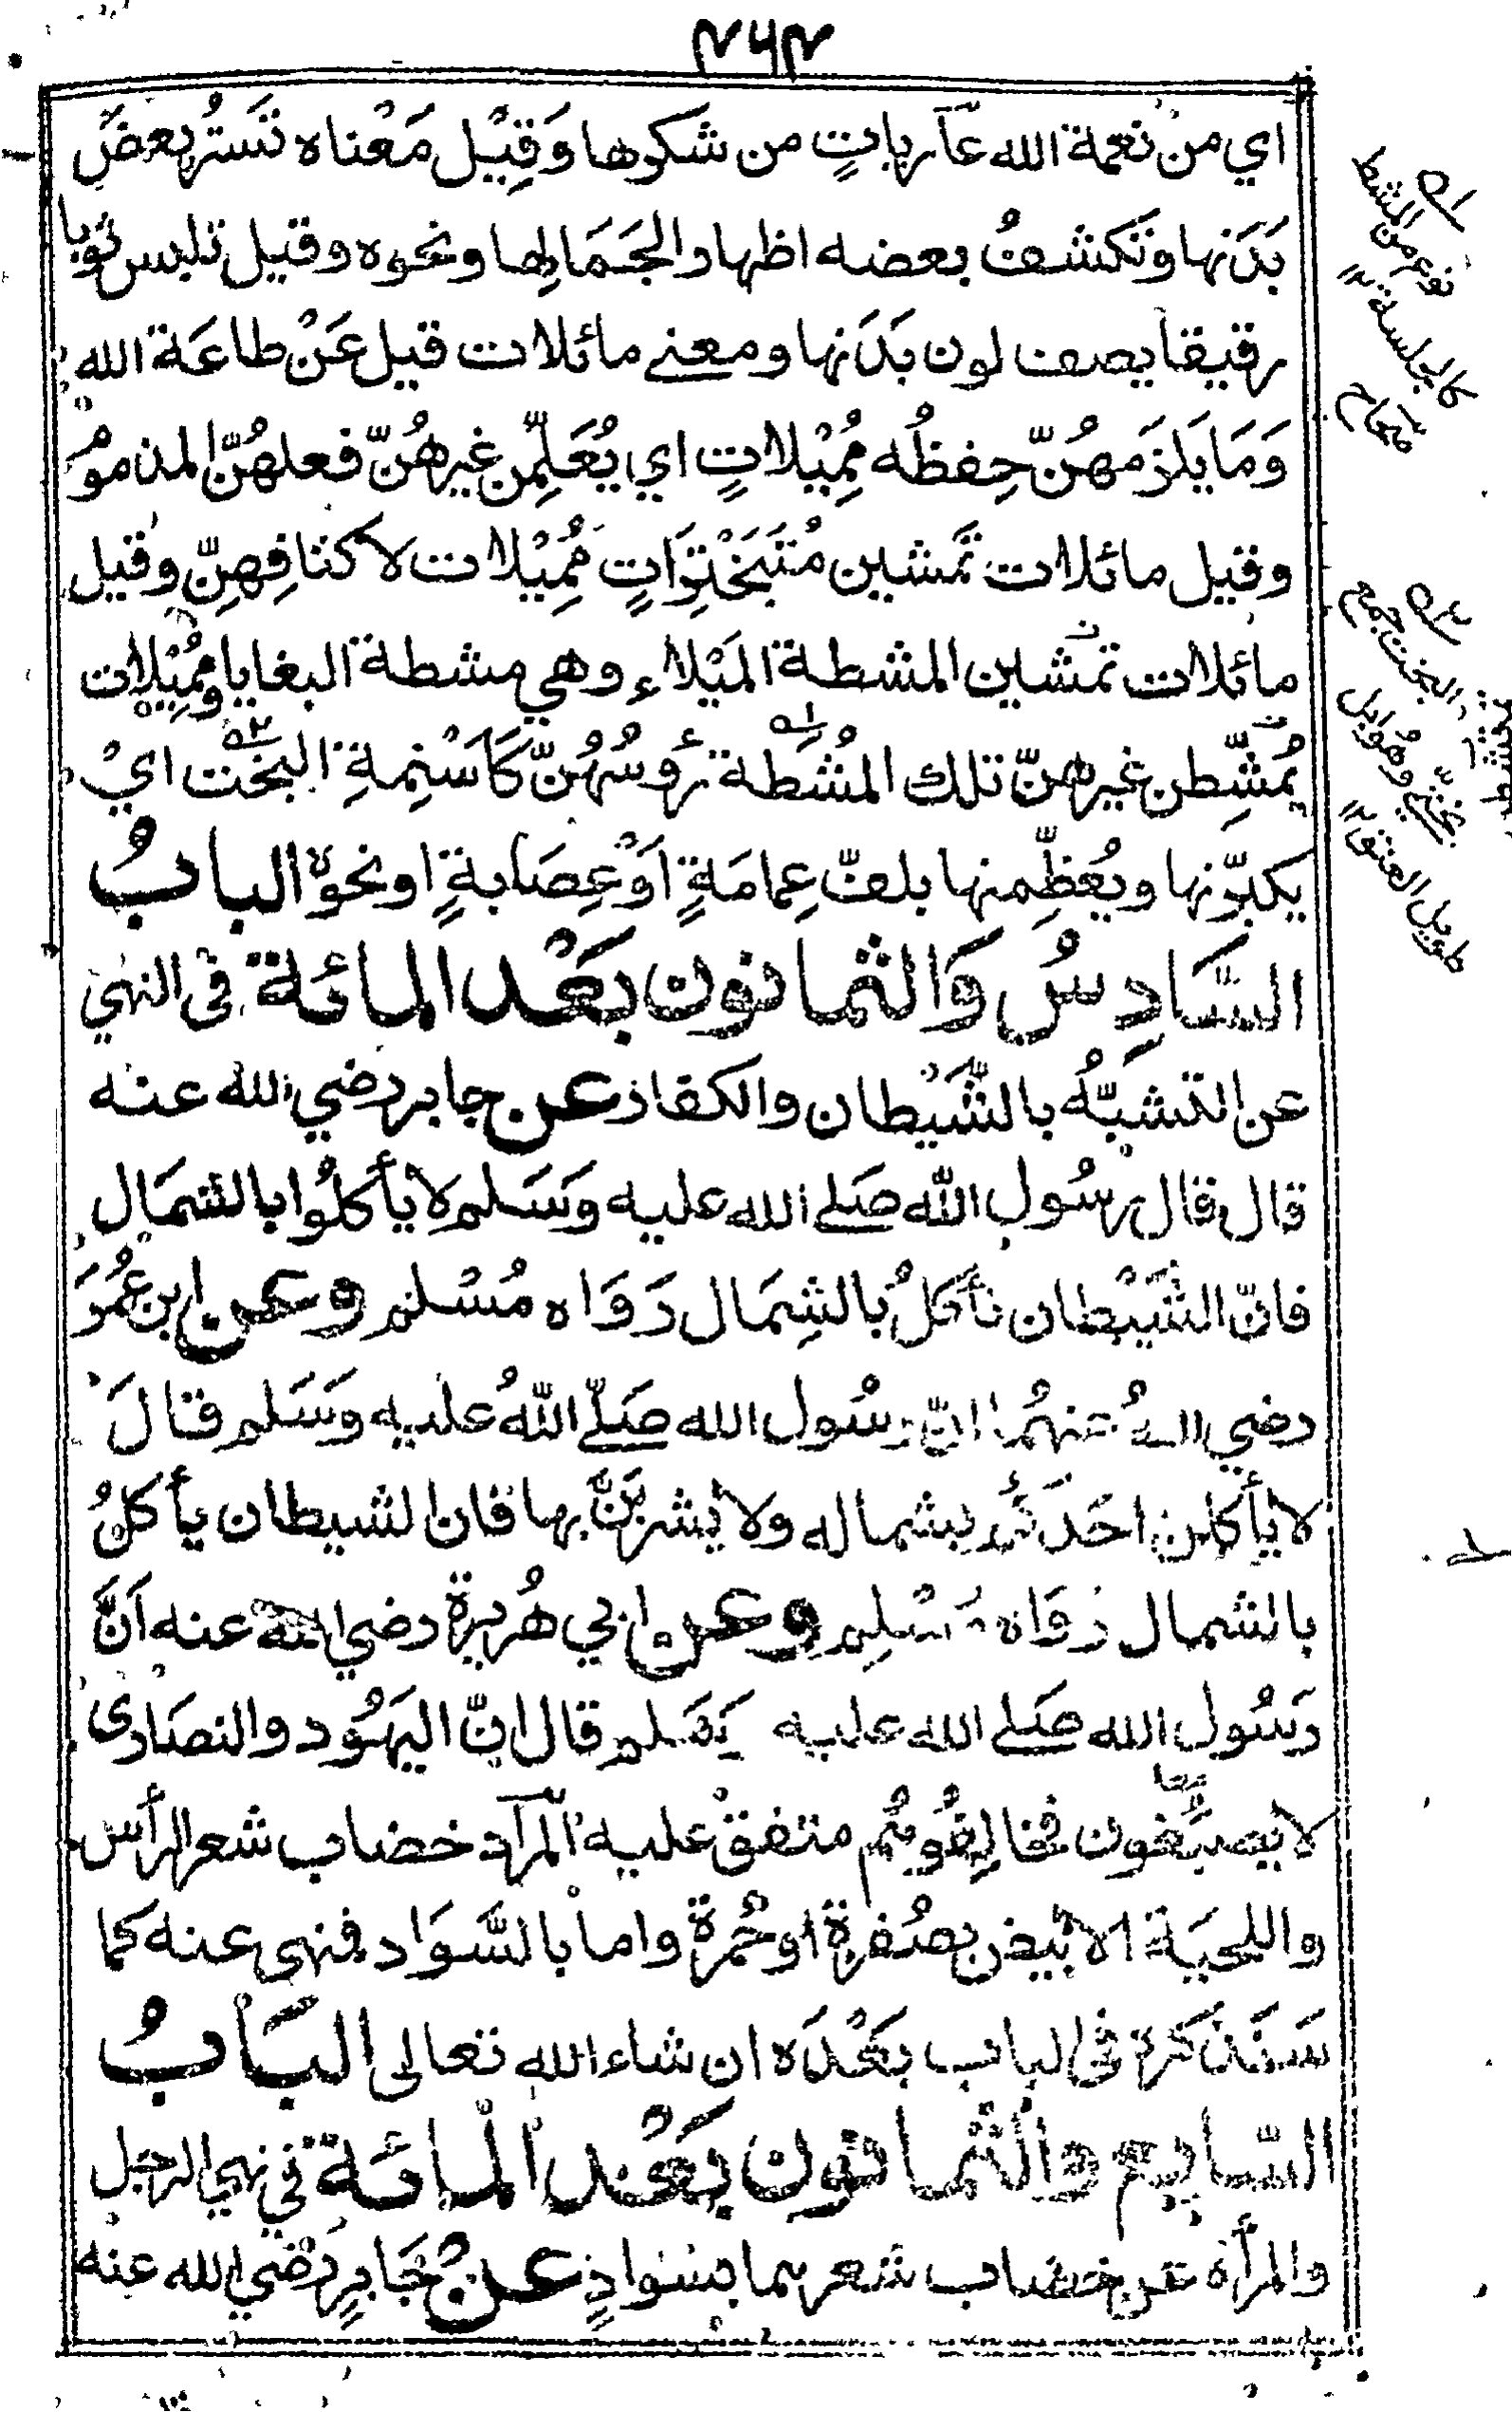 ٣٦٣
اي من نعمة الله عاريات من شكرها وَقِيْل مَعْناه تَستُر بعضَ
بَدَنها وتَكشفُ بعضه اظهارا لجَمَالِها ونحوه وقيل تلبس ثوبا
رقيقا يصف لون بَدَنها ومعنے مائلات قيل عَنْ طاعَة الله
وَمَا يَلزَمهُنّ حِفظُه مُمِيْلاتٍ اي يُعَلِّمْن غيرهُنّ فعلهُنّ المذمومُ
وقيل مائلات تَمشين مُتَبَخْتِرَاتٍ مُمِيْلات لاكتافِهِنّ وقيل
مائلات تمشين المشطة المَيْلاءِ وهي مشطة البغايا ومُمِيْلات
يُمَشِّطن غيرهنّ تلك المُشُطة رُؤسُهُنّ كَاَسْنِمةِ البُخْت ايْ
يكبّرنها ويُعَظِّمنها بلفّ عِمامَةٍ اَوْ عِصَابةٍ او نحوه البابُ
السَّادِسُ وَالثمانون بَعْد المائة في النهي
عن التشبُّهُ بالشَّيْطان والكفار عن جابر رضي الله عنه
قال قال رسُول الله صَلے الله عليه وَسَلم لا يأكلُوا بالشمَال
فانّ الشَّيْطان يأكلُ بالشِمَال رَوَاه مُسْلم وعن ابن عُمُرَ
رضي اللهُ عنهُما انّ رسُول الله صَلّے اللهُ عليه وَسَلم قالَ
لا يأكلن احَدكُم بشماله ولا يشربَنَّ بها فان الشيطان يأكلُ
بالشمال رَوَاه مُسْلِم وعن ابي هُريرة رضي الله عنه اَنَّ
رَسُول الله صَلے الله عليه وَسَلم قال انّ اليَهُود والنصَارى
لا يصبُغون فخالِفُوهُم متفق عليه المرآد خضاب شعر الرأس
واللحيَة الابْيض بصُفرة او حُمرة واما بالسَّوَاد فنهى عنه كما
سَنَذكره في الباب بَعْدَه ان شاء الله تعالى البَابُ
السّابع والثمانون بَعْد المائة في نهي الرجل
والمرأة عن خضاب شعرهما بسَوادٍ عن جَابِرٍ رَضي الله عنه
نوع من المشط
البخت جمع
بختي وهو ابل
طويل العنق